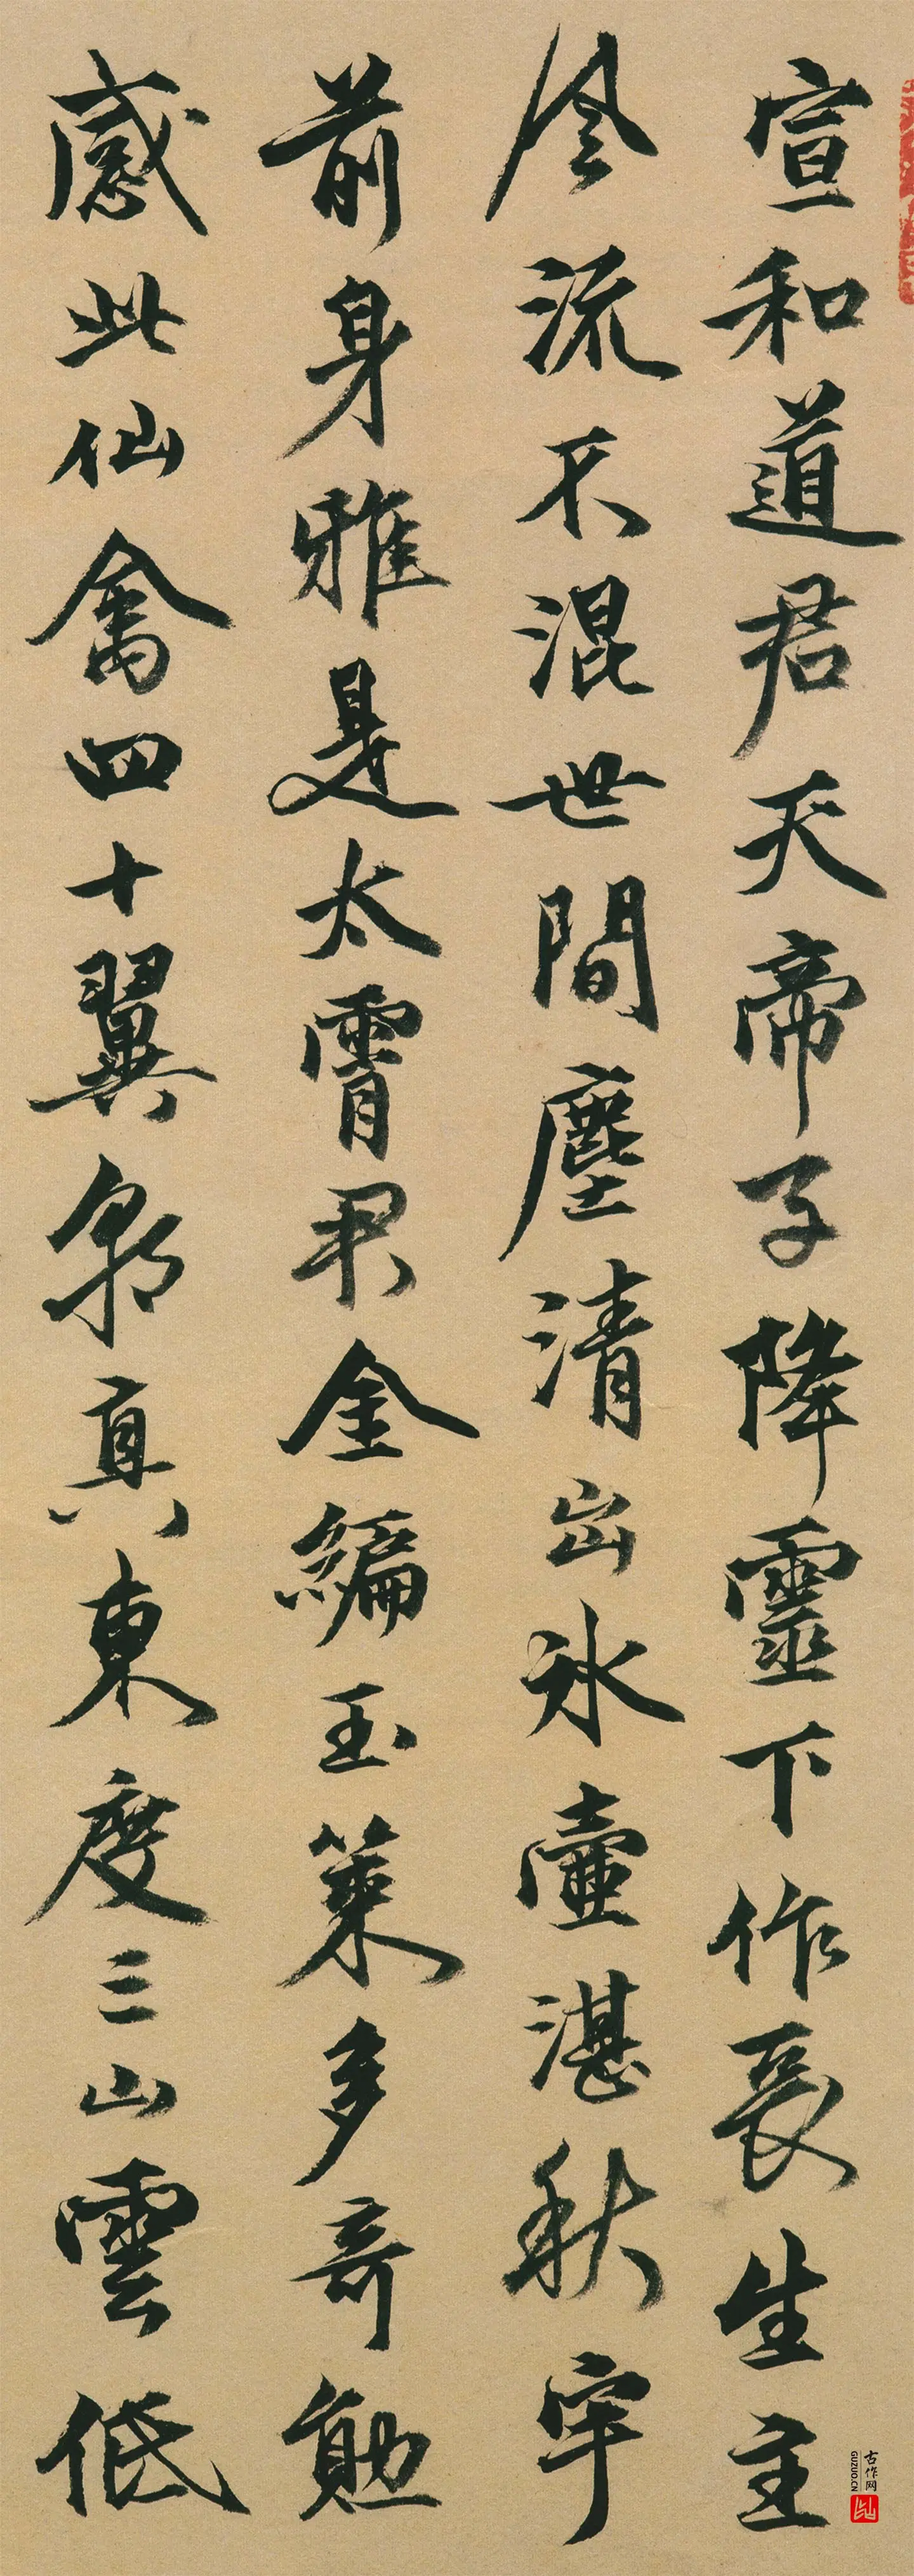 宣和道君天帝子降靈下作長生主
風流不混世間塵清出冰壺湛秋宇
前身雅是太霄君金編玉策多奇勲
感此仙禽四十翼朝真東度三山雲低
古作网
GUZUO.CN